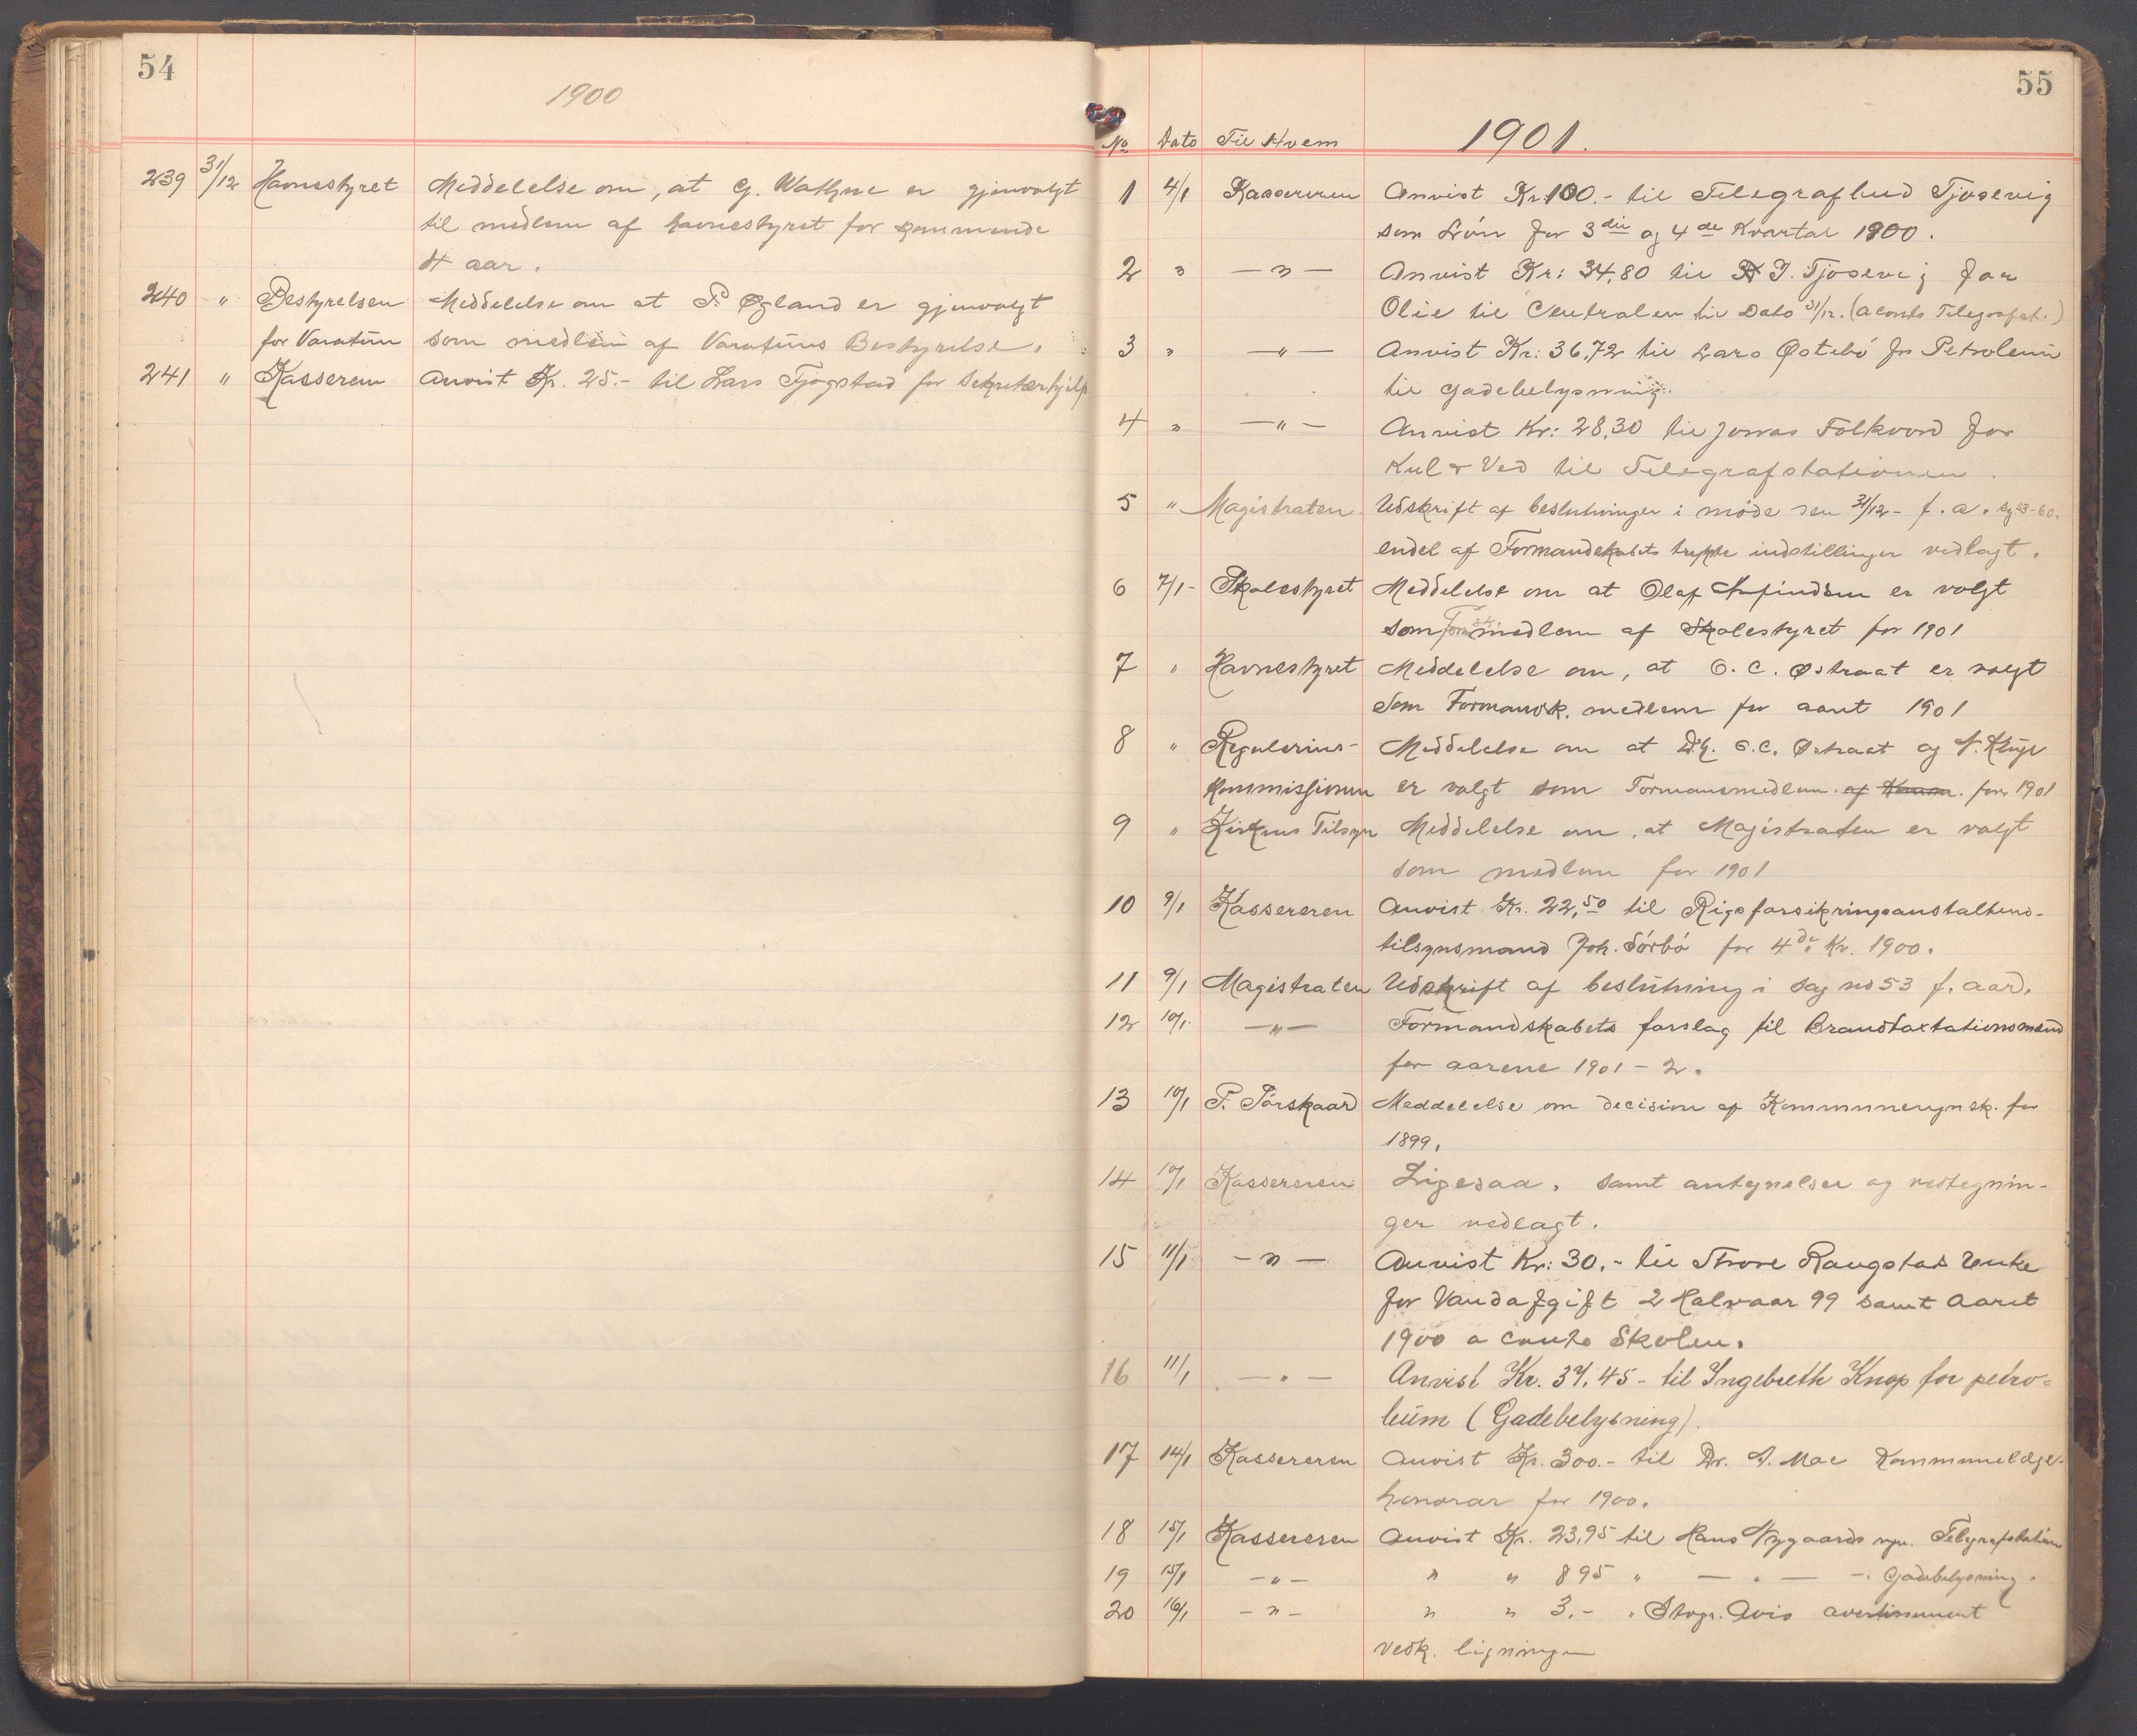 54
1900
239 31/12 Havnestyret Meddelelse om, at G. Wathne er gjenvalgt
til medlem af havnestyret for kommende
4 aar.
240 " Bestyrelsen Meddelelse om at P. Øgland er gjenvalgt
for Varatun som medlem af Varatuns Bestyrelse.
241 " Kasseren Anvist Kr. 25.- til Lars Fjogstad for Sekretærhjelp
55
No Dato Til Hvem 1901.
1 4/1 Kassereren Anvist Kr. 100.- til Telegrafbud Tjosevig
som Løn for 3die og 4de Kvartal 1900.
2 " — " — Anvist Kr: 34,80 til T. Tjosevig for
Olie til Centralen til Dato 31/12. (a conto Telegrafst.)
3 " — " — Anvist Kr: 36,72 til Lars Østebø for Petroleum
til Gadebelysning.
4 " — " — Anvist Kr: 28,30 til Jonas Folkvord for
Kul & Ved til Telegrafstationen.
5 " Magistraten Udskrift af beslutninger i møde den 31/12 - f. a. sag 53-60.
endel af Formandskabets trykte indstillinger vedlagt.
6 7/1- Skolestyret Meddelelse om at Olaf Arfindsen er valgt
som Formsk. medlem af Skolestyret for 1901
7 " Havnestyret Meddelelse om, at O. C. Østraat er valgt
som Formandsk. medlem for aaret 1901
8 " Regulerins- Meddelelse om at Dh. O. C. Østraat og N. Kluge
kommissionen er valgt som Formansmedlem. af Komm. for 1901
9 " Kirkens Tilsyn Meddelelse om, at Magistraten er valgt
som medlem for 1901
10 9/1 Kassereren Anvist Kr. 22,50 til Rigsforsikringsanstaltens-
tilsynsmand Joh. Sörbö for 4de Kv. 1900.
11 9/1 Magistraten Udskrift af beslutning i sag no 53 f. aar.
12 10/1. — " — Formandskabets forslag til Brandtaxtationsmænd
for aarene 1901 - 2.
13 10/1 P. Pörskaard Meddelelse om decision af Kommunereynsk. for
1899.
14 10/1 Kassereren Ligesaa. samt antegnelser og vedtegnin-
ger vedlagt.
15 11/1 — " — Anvist Kr: 30.- til Thore Raugstad Enke
for Vandafgift 2 Halvaar 99 samt Aaret
1900 a conto Skolen.
16 11/1 — " — Anvist Kr. 37,45 - til Ingebreth Knop for petro-
leum (Gadebelysning).
17 14/1 Kassereren Anvist Kr. 300.- til Dr. A. Mac Kommunelæge-
honorar for 1900.
18 15/1 Kassereren Anvist Kr. 23,95 til Hans Nygaards regn. Telegrafstation
19 15/1 — " — " " 8 95 " — " — —. Gadebelysning.
20 16/1 — " — " " 3.- " Stvgr. Avis avertissement
vedk. ligningen